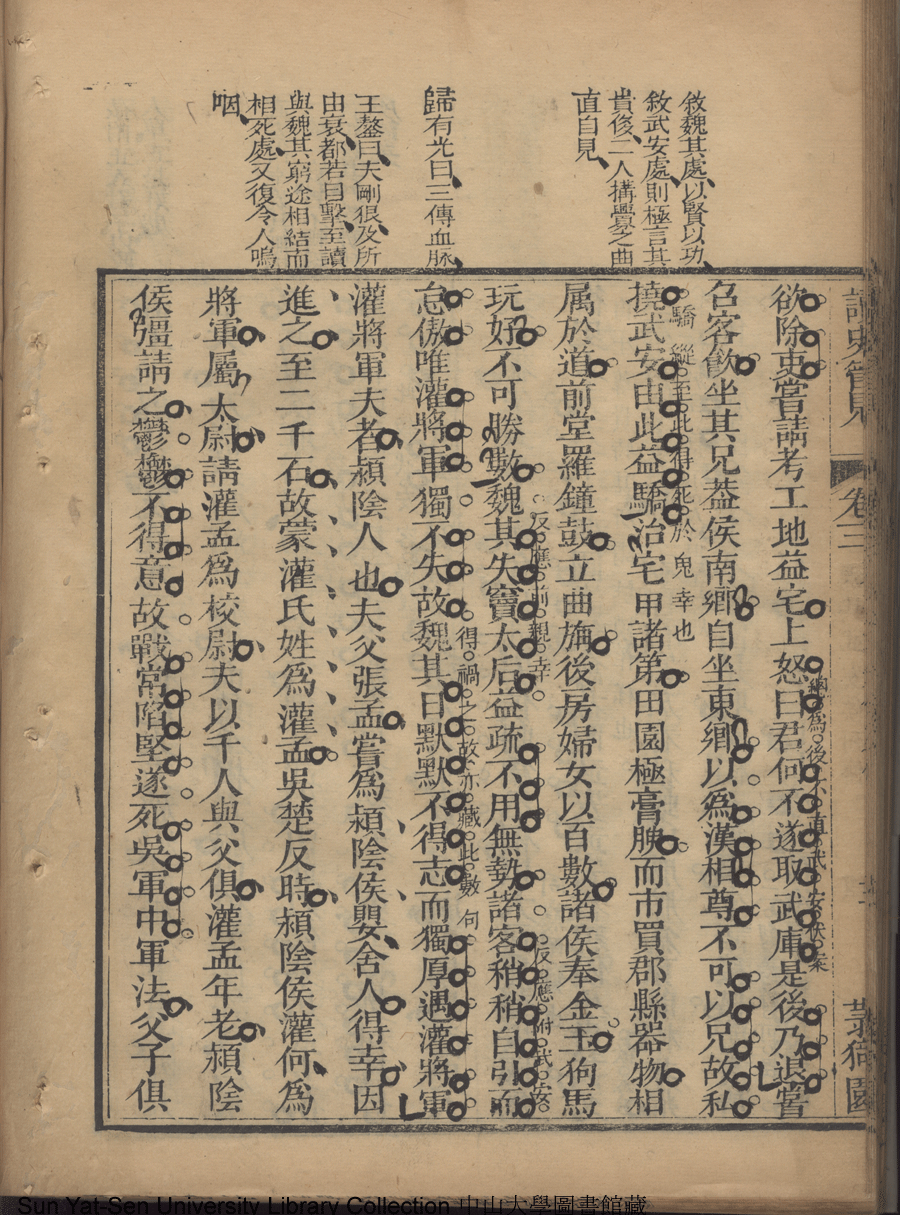 敘魏其處以賢以功
敘武安處則極言其
貴後二人搆釁之曲
直自見
歸有光曰三傳血脉
王鏊曰夫剛狠及所
由衰都若目擊至讀
與魏其窮途相結而
相死處又復令人嗚
咽
卷三
欲除吏嘗請考工地益宅上怒曰君何不遂取武庫是後乃退嘗
綱爲後不直武安伏案
召客飲坐其兄葢侯南鄉自坐東鄉以爲漢相尊不可以兄故私
撓武安由此益驕治宅甲諸第田園極膏腴而市買郡縣器物相
驕縱至此得死於鬼幸也
属於道前堂羅鐘鼓立曲旃後房婦女以百數諸侯奉金玉狗馬
玩好不可勝數魏其失竇太后益疏不用無勢諸客稍稍自引而
反應前親幸
反應附武安
怠傲唯灌將軍獨不失故魏其日默默不得志而獨厚遇灌將軍
得禍之故亦藏此數句
灌將軍夫者潁陰人也夫父張孟嘗爲潁陰侯嬰舍人得幸因
進之至二千石故蒙灌氏姓爲灌孟吳楚反時潁陰侯灌何爲
將軍屬太尉請灌孟爲校尉夫以千人與父俱灌孟年老潁陰
侯彊請之鬱鬱不得意故戰常陷堅遂死吳軍中軍法父子俱
Sun Yat-Sen University Library Collection 中山大學圖書館藏